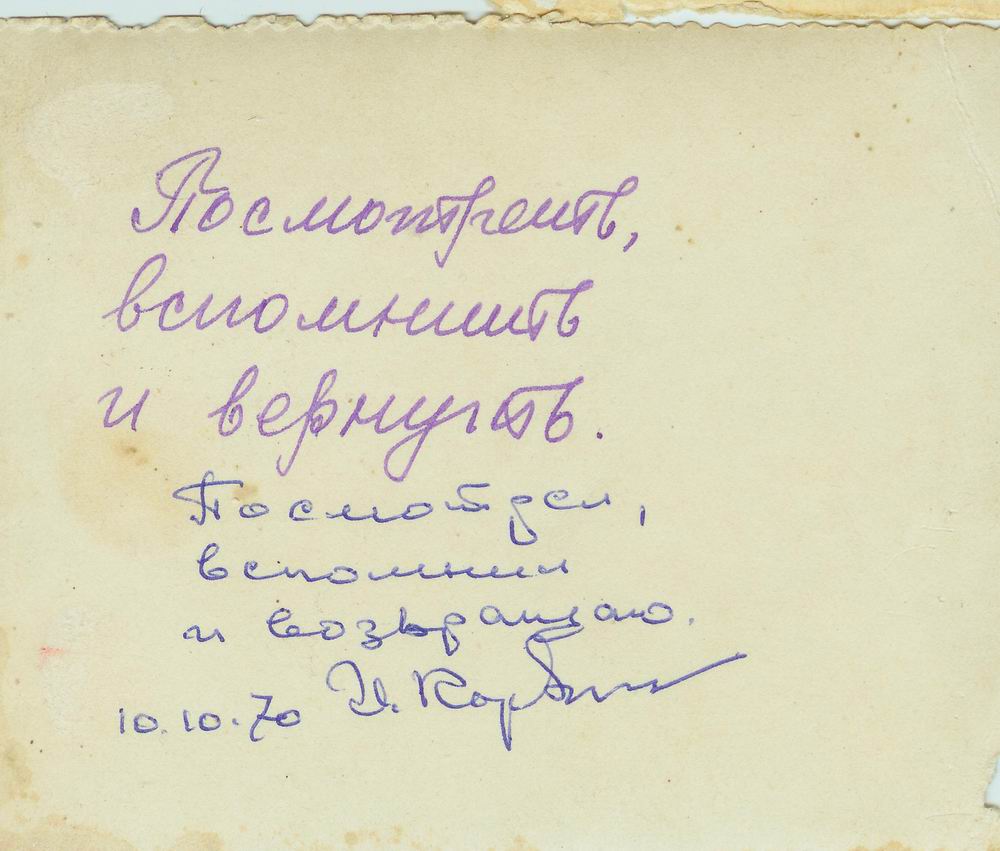 Посмотреть,
вспомнить
и вернуть.
Посмотрел,
вспомнил
и возвращаю.
10.10.70 И.